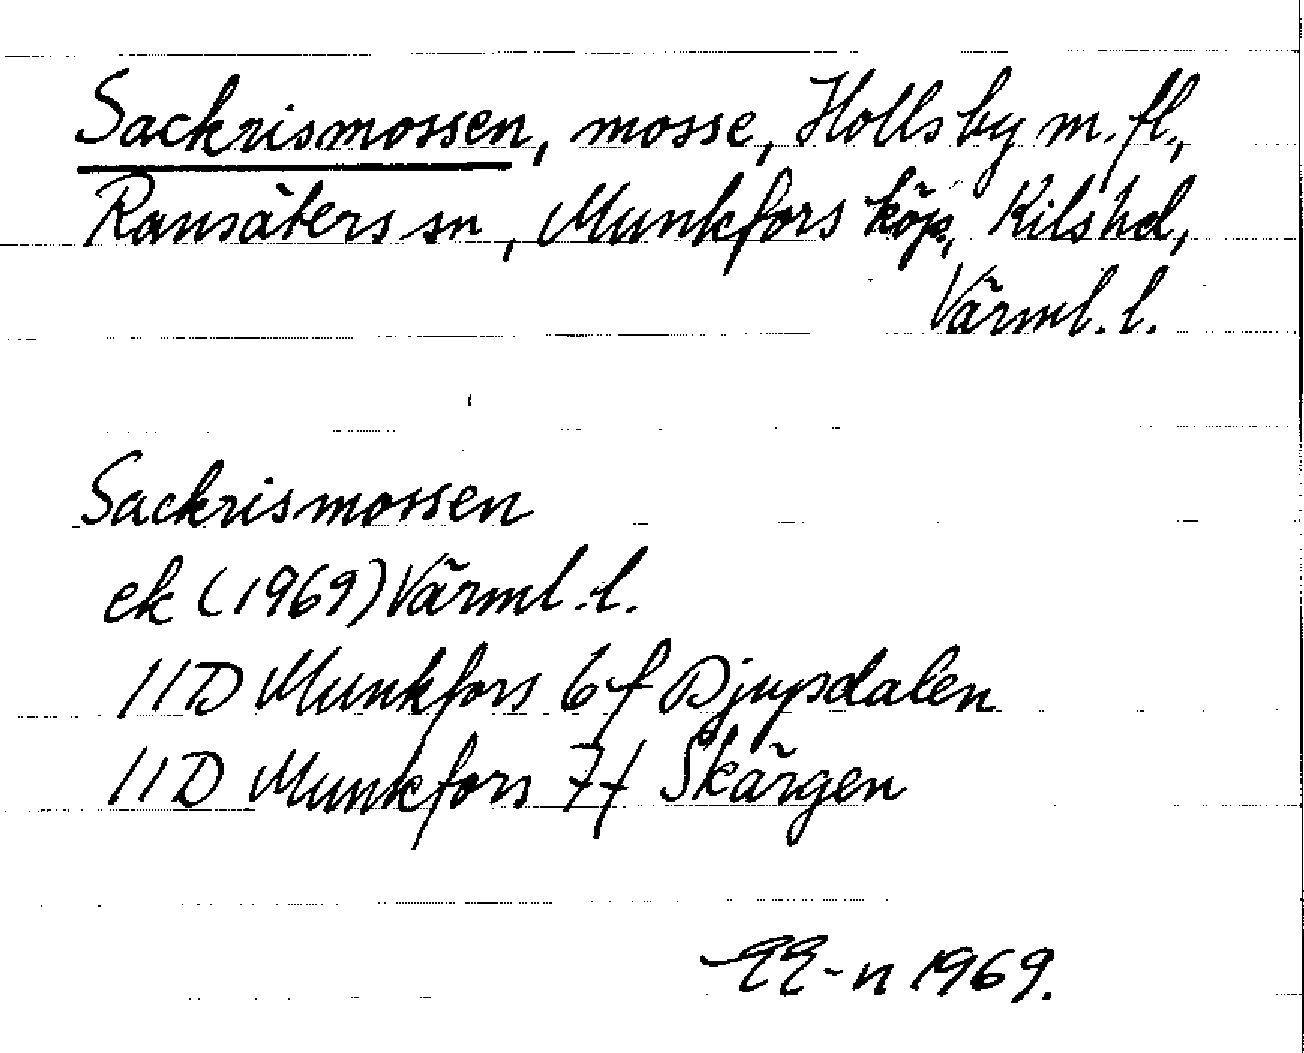 Sackrismossen, mosse, Hollsby m. fl.,
Ransäters sn, Munkfors köp, Kils hd,
Värml. l.
Sackrismossen
ek (1969) Värml. l.
11D Munkfors 6f Djupsdalen
11D Munkfors 7f Skärgen
EE-n 1969.